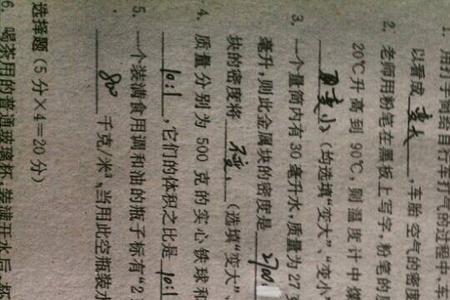 1. 用打气筒给自行车打气的过程中,车
以看成 变大 ,车胎空气的密度
2. 老师用粉笔在黑板上写字,粉笔的
20℃升高到90℃,则温度计中煤
变小 (均选填“变大”、“变小”
3. 一个量筒内有30毫升水,质量为27
毫升,则此金属块的密度是
块的密度将 不变 (选填“变大”、
4. 质量分别为500克的实心铁球和
10:1 ,它们的体积之比是 10:1
5. 一个装满食用调和油的瓶子标有“2.
800 千克/米³,当用此空瓶装水
选择题(5分×4=20分)
6. 喝茶用的普通玻璃杯,装满开水后,杯